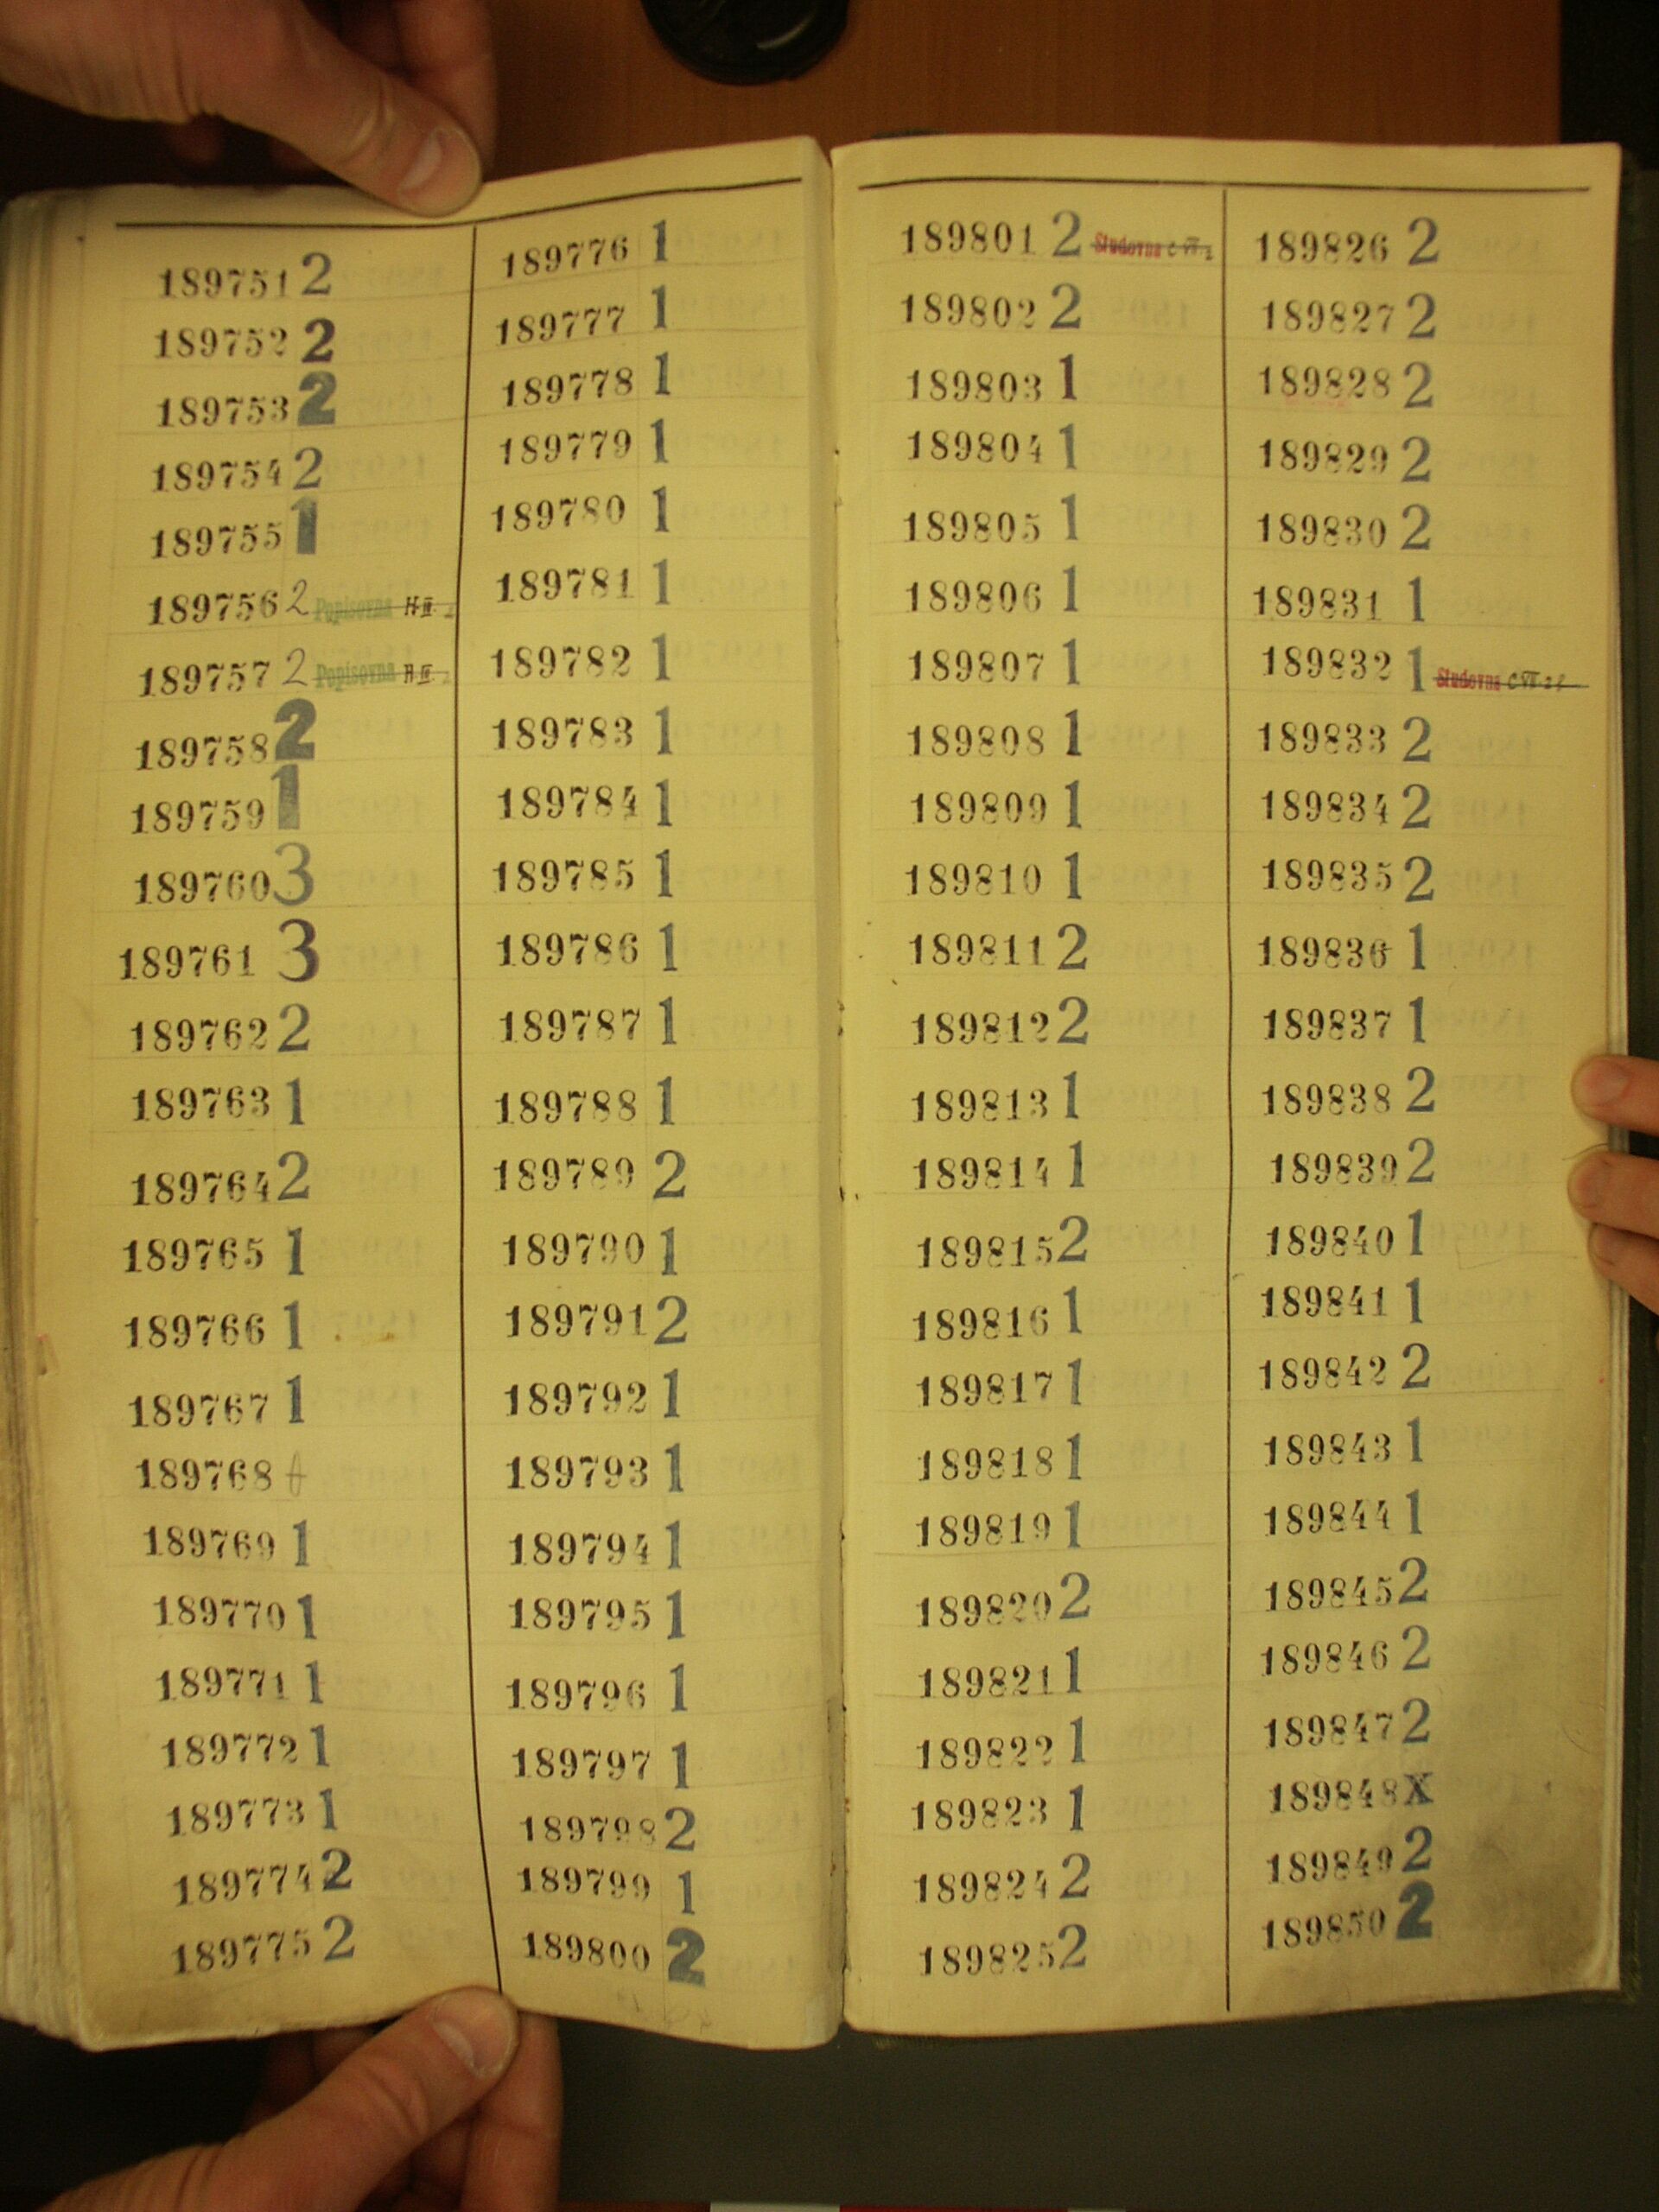 189751 2
189752 2
189753 2
189754 2
189755 1
189756 2 Popisovna H III
189757 2 Popisovna H III
189758 2
189759 1
189760 3
189761 3
189762 2
189763 1
189764 2
189765 1
189766 1
189767 1
189768
189769 1
189770 1
189771 1
189772 1
189773 1
189774 2
189775 2
189776 1
189777 1
189778 1
189779 1
189780 1
189781 1
189782 1
189783 1
189784 1
189785 1
189786 1
189787 1
189788 1
189789 2
189790 1
189791 2
189792 1
189793 1
189794 1
189795 1
189796 1
189797 1
189798 2
189799 1
189800 2
189801 2 Studovna C VII
189802 2
189803 1
189804 1
189805 1
189806 1
189807 1
189808 1
189809 1
189810 1
189811 2
189812 2
189813 1
189814 1
189815 2
189816 1
189817 1
189818 1
189819 1
189820 2
189821 1
189822 1
189823 1
189824 2
189825 2
189826 2
189827 2
189828 2
189829 2
189830 2
189831 1
189832 1 Studovna C VII
189833 2
189834 2
189835 2
189836 1
189837 1
189838 2
189839 2
189840 1
189841 1
189842 2
189843 1
189844 1
189845 2
189846 2
189847 2
189848 X
189849 2
189850 2